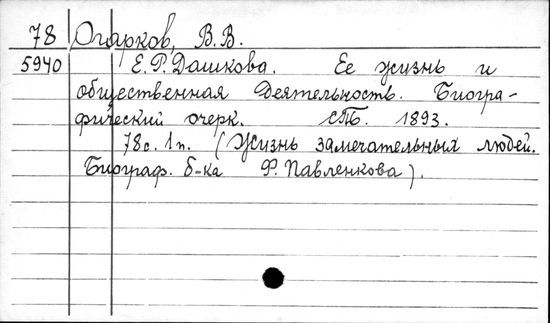 78 Огарков, В.В.
5940 Е.Р. Дашкова. Ее жизнь и
общественная деятельность. Биогра-
фический очерк. СПб. 1893.
78с. 1п. (Жизнь замечательных людей.
Биограф. б-ка Ф. Павленкова).